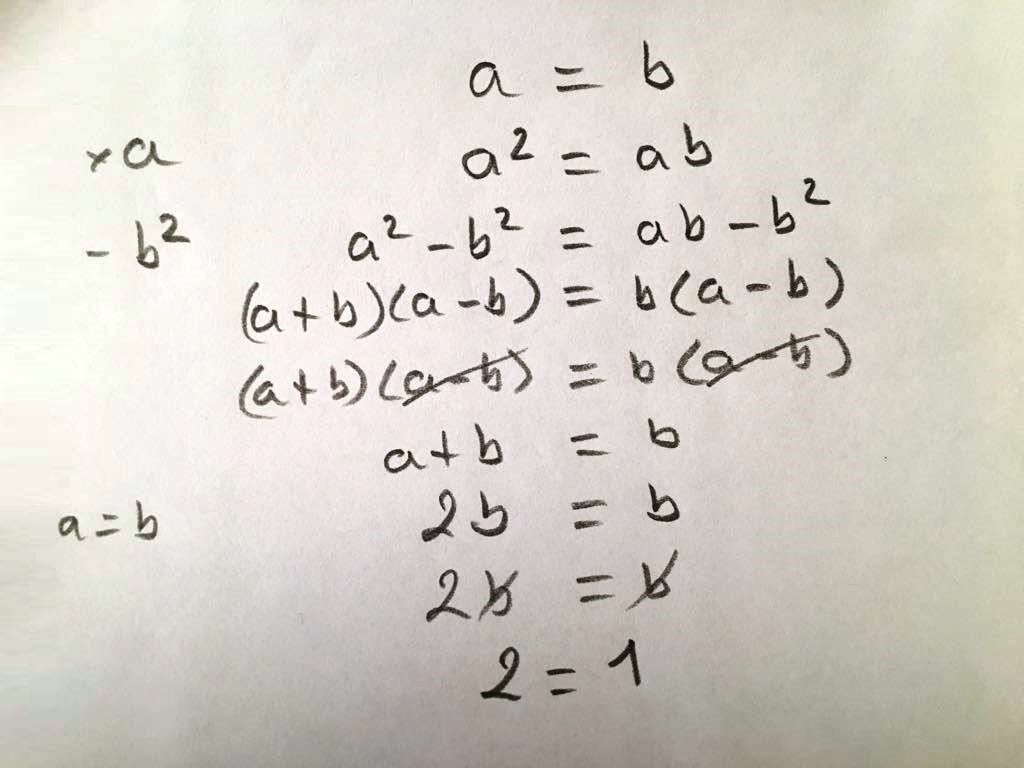 a = b
×a a² = ab
- b² a² - b² = ab - b²
(a + b)(a - b) = b(a - b)
(a + b)(a - b) = b(a - b)
a + b = b
a = b 2b = b
2b = b
2 = 1